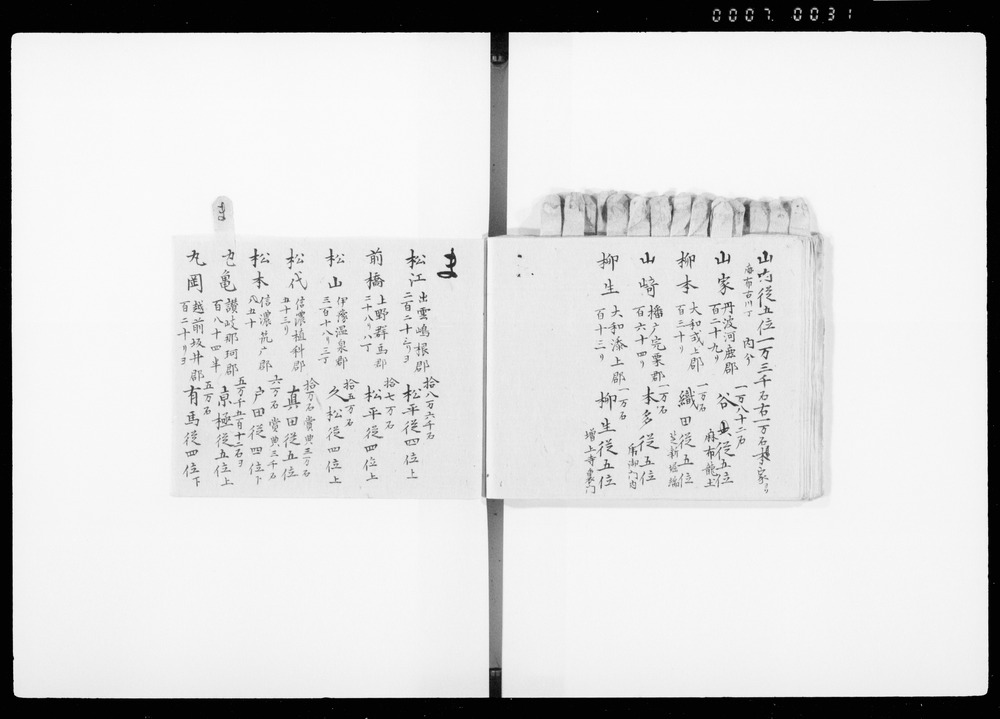 0007 0031
山内従五位一万三千石右一万石本家より
麻布古川丁
内分
山家 丹波河鹿郡 一万八十二石 谷 従五位
百二十九り 麻布龍土
柳本 大和式上郡 一万石 織田従五位
百三十り 芝新堀端
山崎 播广完粟郡 一万石 本多従五位
百六十四り
柳生 大和添上郡 一万石 柳生従五位
百十三り 増上寺裏门
ま
松江 出雲嶋根郡 拾八万六千石 松平従四位上
二百二十三りヨ
前橋 上野群馬郡 拾七万石 松平従四位上
二十八り八丁
松山 伊豫温泉郡 拾五万石 久松従四位上
三百十八り三丁
松代 信濃植科郡 拾万石 賞典三万石 真田従五位
五十三り
松本 信濃筑广郡 六万石 賞典三千石 戸田従四位下
八五十
丸亀 讃岐那珂郡 五万千五百十二石ヨ 京極従五位上
百八十四半
丸岡 越前坂井郡 五万石 有馬従四位下
百二十りヨ